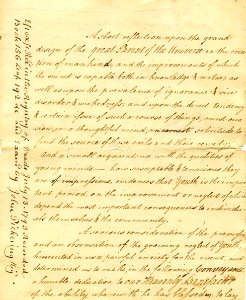 A short reflection upon the grand
design of the great Parent of the Universe in the crea
tion of mankind, and the improvements of which
the mind is capable both in knowledge & virtue as
well as upon the prevalence of ignorance & vice
disorder & wickedness, and upon the direct tendency
& certain issue of such a course of things, must occa
sion, in a thoughtful mind, an earnest solicitude to
find the source of these evils and their remedy
and a small acquaintance with the qualities of
young minds — how susceptible & tenacious they
are of impressions, evidences that Youth is the im
portant period, on the improvement or neglect of which
depend the most important consequences to individu
als themselves & the community.
A serious consideration of the premises
and an observation of the growing neglect of Youth
have excited in us a painful anxiety for the event and
determined us to make, in the following Conveyance
a humble dedication to our Heavenly Benefactor
of the ability wherewith he has blessed us to lay